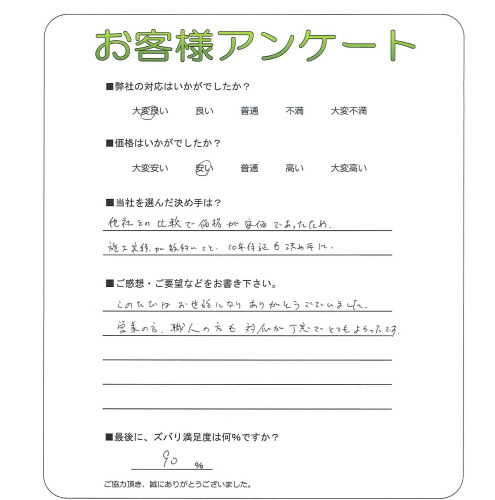 お客様アンケート
■弊社の対応はいかがでしたか？
大変良い 良い 普通 不満 大変不満
■価格はいかがでしたか？
大変安い 安い 普通 高い 大変高い
■当社を選んだ決め手は？
他社との比較で価格が安価であったため。
施工実績が数多いこと、10年保証も決め手に。
■ご感想・ご要望などをお書き下さい。
このたびはお世話になりありがとうございました。
営業の方、職人の方も対応が丁寧でとてもよかったです。
■最後に、ズバリ満足度は何％ですか？
90 %
ご協力頂き、誠にありがとうございました。